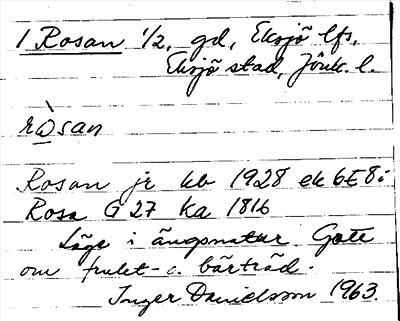 1 Rosan 1/2, gd, Eksjö lfs,
Eksjö stad, Jönk. l.
ròsan
Rosan jr kb 1928 ek 6E8i
Rosa G 27 Ka 1816
Läge i ängsnatur. Gott
om frukt- o. bärträd.
Inger Danielsson 1963.